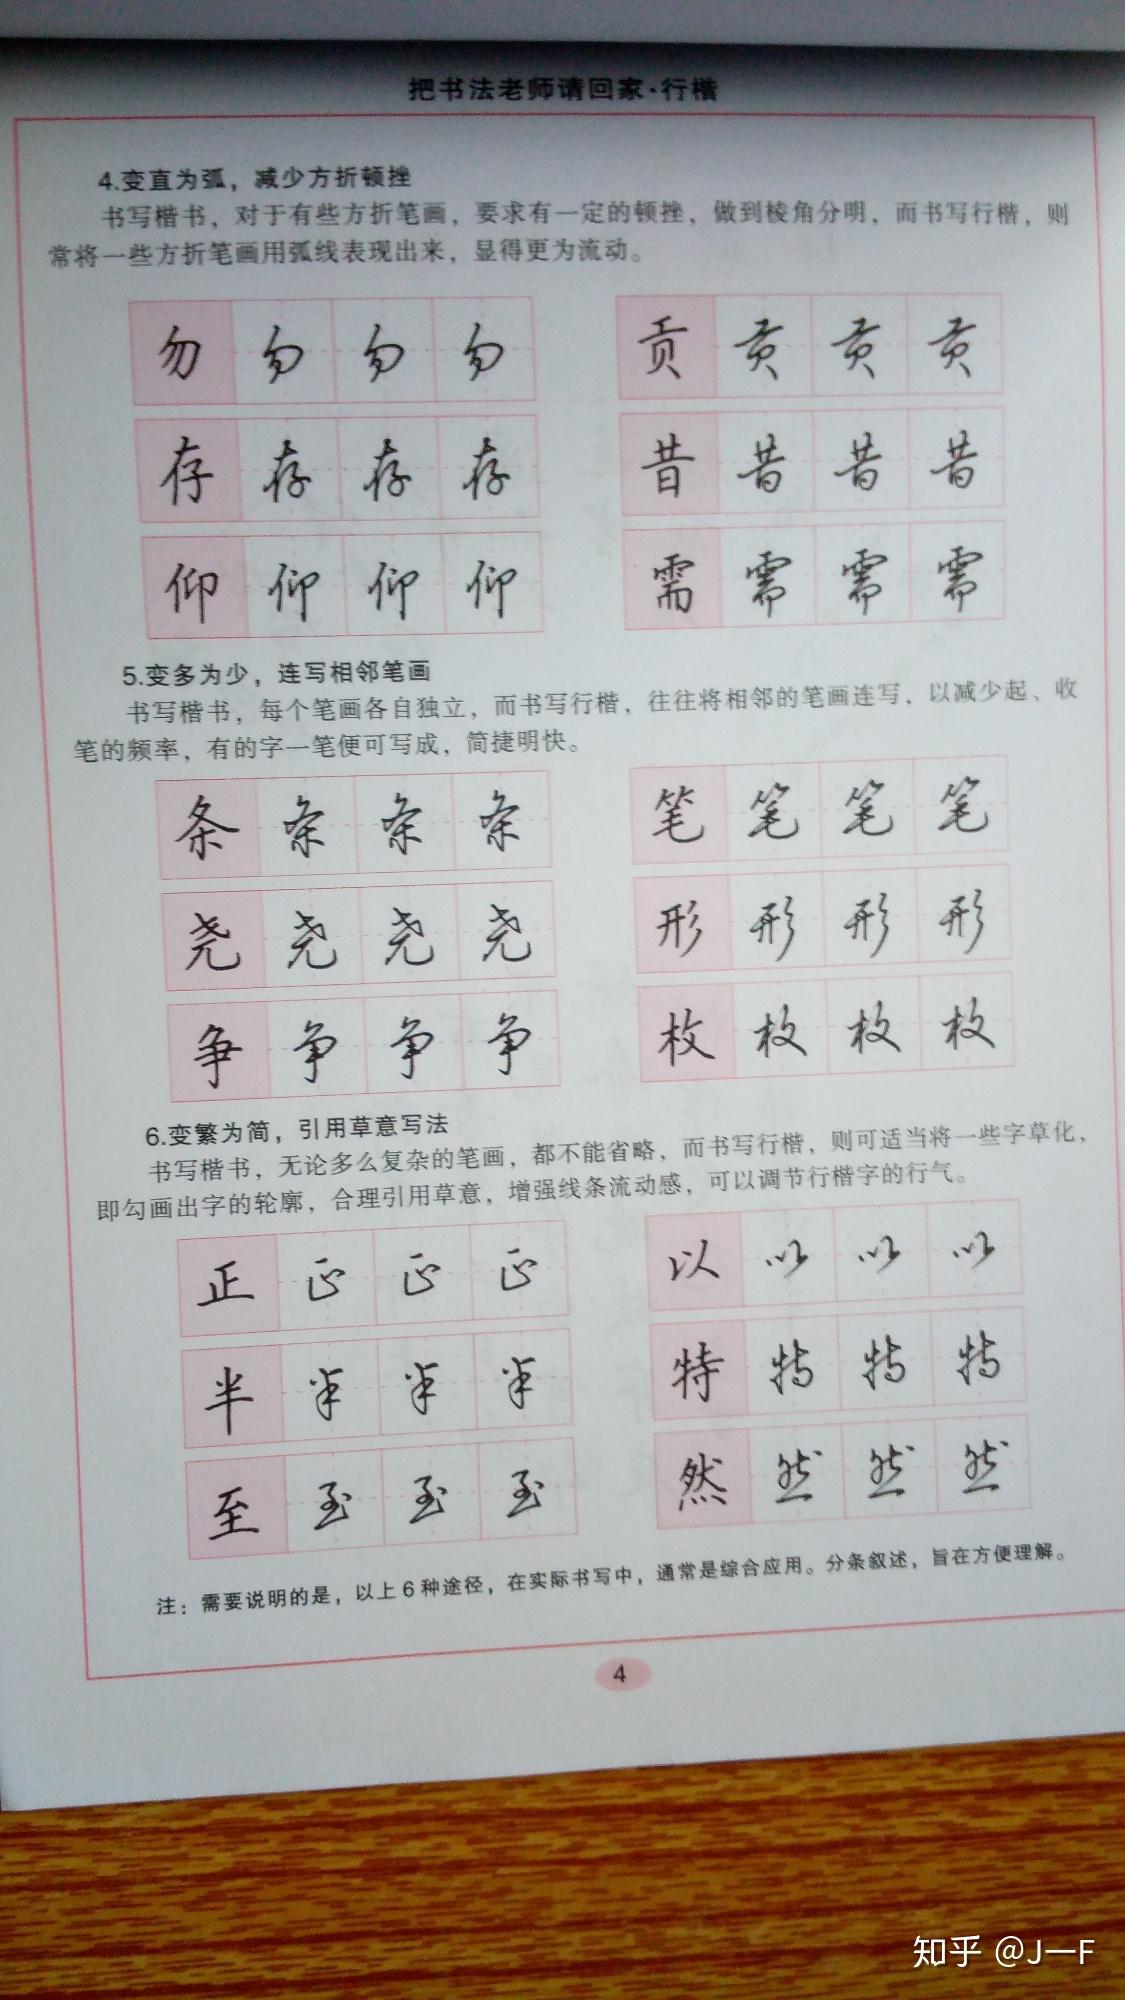 把书法老师请回家·行楷
4.变直为弧，减少方折顿挫
书写楷书，对于有些方折笔画，要求有一定的顿挫，做到棱角分明，而书写行楷，则
常将一些方折笔画用弧线表现出来，显得更为流动。
勿 勿 勿 勿 贡 贡 贡 贡
存 存 存 存 昔 昔 昔 昔
仰 仰 仰 仰 需 需 需 需
5.变多为少，连写相邻笔画
书写楷书，每个笔画各自独立，而书写行楷，往往将相邻的笔画连写，以减少起、收
笔的频率，有的字一笔便可写成，简捷明快。
条 条 条 条 笔 笔 笔 笔
尧 尧 尧 尧 形 形 形 形
争 争 争 争 枚 枚 枚 枚
6.变繁为简，引用草意写法
书写楷书，无论多么复杂的笔画，都不能省略，而书写行楷，则可适当将一些字草化，
即勾画出字的轮廓，合理引用草意，增强线条流动感，可以调节行楷字的行气。
正 正 正 正 以 以 以 以
半 半 半 半 特 特 特 特
至 至 至 至 然 然 然 然
注：需要说明的是，以上6种途径，在实际书写中，通常是综合应用。分条叙述，旨在方便理解。
4
知乎 @J—F